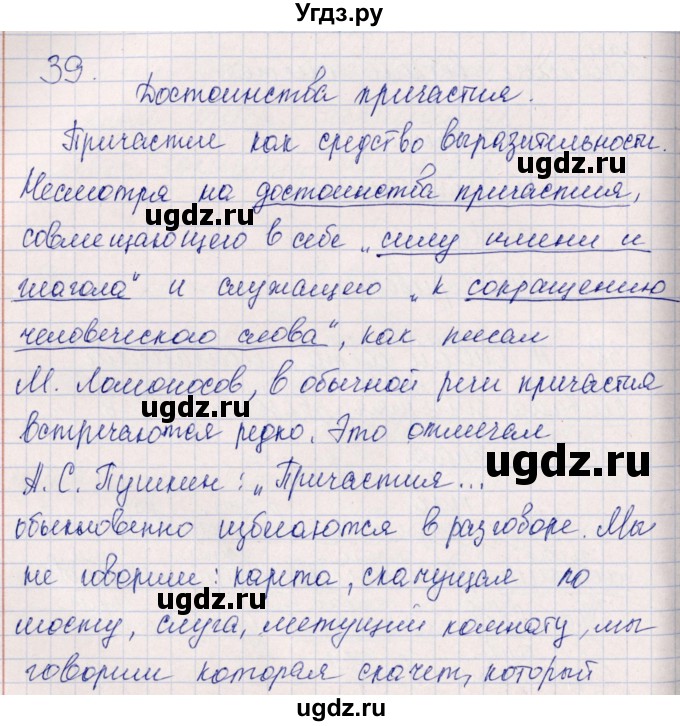 Угдз.ру
39.
Достоинства причастия.
Причастие как средство выразительности.
ugdz.ru
Несмотря на достоинства причастия,
ugdz.ru
совмещающего в себе „силу имени и
глагола" и служащего „к сокращению
ugdz.ru
человеческого слова", как писал
М. Ломоносов, в обычной речи причастия
ugdz.ru
встречаются редко. Это отмечал
ugdz.ru
А. С. Пушкин: „Причастия...
обыкновенно избегаются в разговоре. Мы
не говорим: карета, скачущая по
ugdz.ru
мосту, слуга, метущий комнату, мы
говорим которая скачет, который
ugdz.ru